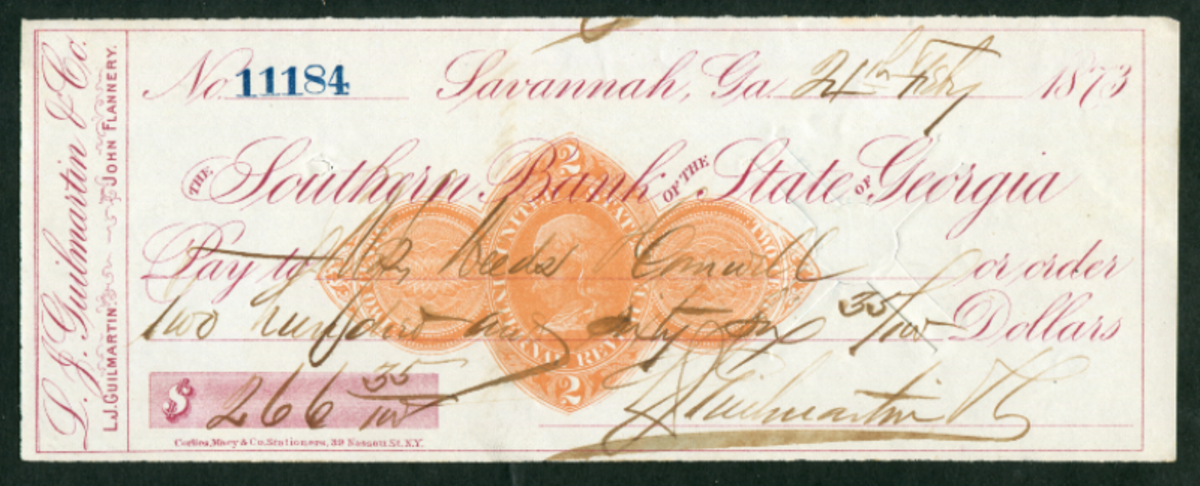 L. J. Guilmartin & Co.
L.J. GUILMARTIN. JOHN FLANNERY.
No. 11184 Savannah, Ga. 21st Feby 1873
THE Southern Bank OF THE State OF Georgia
Pay to Weeds & or order
two hundred and sixty six 35/100 Dollars
$ 266 35/100
L J Guilmartin & Co
Corlies, Macy & Co. Stationers, 39 Nassau St. N.Y.
2
UNITED STATES INTERNAL REVENUE
2